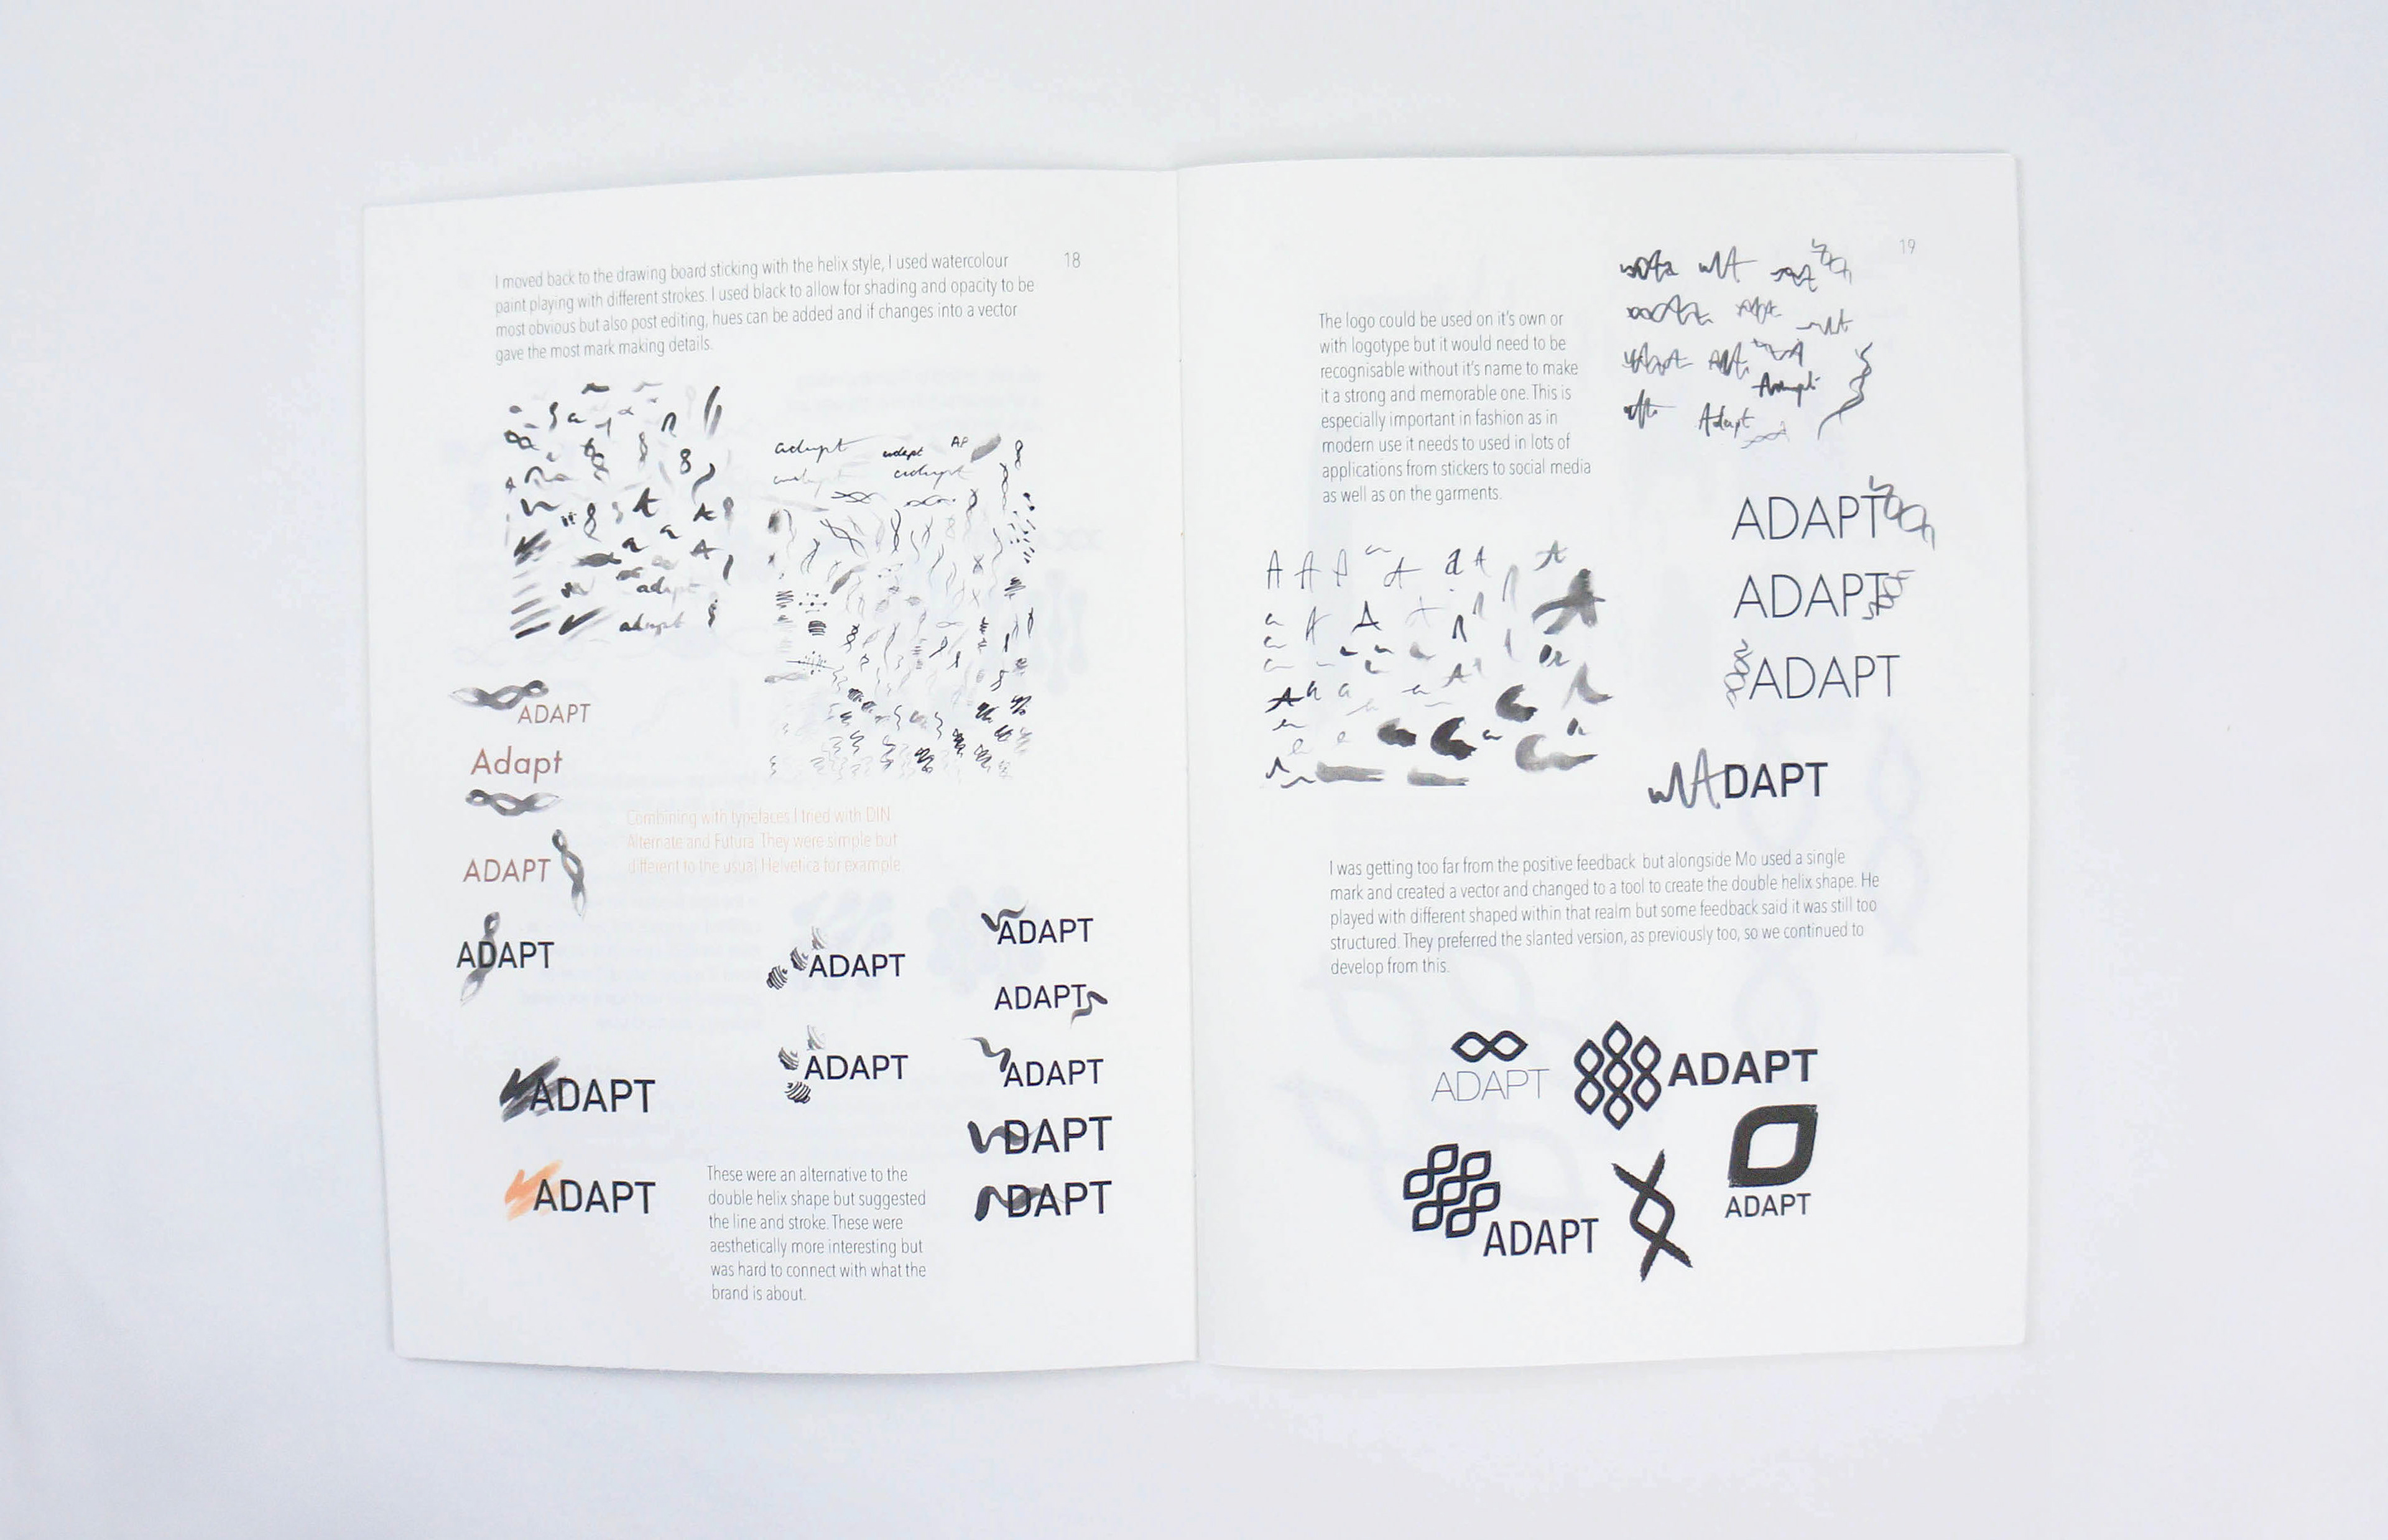 18
I moved back to the drawing board sticking with the helix style, I used watercolour
paint playing with different strokes. I used black to allow for shading and opacity to be
most obvious but also post editing, hues can be added and if changes into a vector
gave the most mark making details.
adapt
adapt
AP
adapt
adapt
adapt
ADAPT
Adapt
ADAPT
ADAPT
Combining with typefaces I tried with DIN
Alternate and Futura. They were simple but
different to the usual Helvetica for example.
ADAPT
ADAPT
ADAPT
ADAPT
ADAPT
DAPT
DAPT
ADAPT
ADAPT
These were an alternative to the
double helix shape but suggested
the line and stroke. These were
aesthetically more interesting but
was hard to connect with what the
brand is about.
19
The logo could be used on it's own or
with logotype but it would need to be
recognisable without it's name to make
it a strong and memorable one. This is
especially important in fashion as in
modern use it needs to used in lots of
applications from stickers to social media
as well as on the garments.
Adapt
ADAPT
ADAPT
ADAPT
ADAPT
I was getting too far from the positive feedback but alongside Mo used a single
mark and created a vector and changed to a tool to create the double helix shape. He
played with different shaped within that realm but some feedback said it was still too
structured. They preferred the slanted version, as previously too, so we continued to
develop from this.
ADAPT
ADAPT
ADAPT
ADAPT